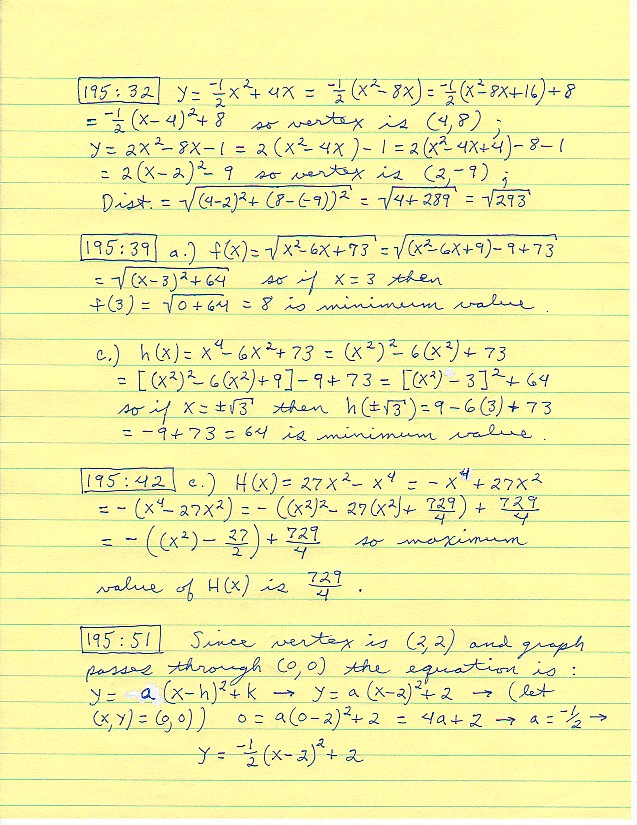 195:32 y = -1/2 x² + 4x = -1/2 (x² - 8x) = -1/2 (x² - 8x + 16) + 8
= -1/2 (x - 4)² + 8 so vertex is (4, 8) ;
y = 2x² - 8x - 1 = 2 (x² - 4x ) - 1 = 2 (x² - 4x + 4) - 8 - 1
= 2 (x - 2)² - 9 so vertex is (2, -9) ;
Dist. = √((4-2)² + (8 - (-9))²) = √(4 + 289) = √293
195:39 a.) f(x) = √(x² - 6x + 73) = √((x² - 6x + 9) - 9 + 73)
= √((x - 3)² + 64) so if x = 3 then
f(3) = √(0 + 64) = 8 is minimum value .
c.) h(x) = x⁴ - 6x² + 73 = (x²)² - 6(x²) + 73
= [(x²)² - 6(x²) + 9] - 9 + 73 = [(x²) - 3]² + 64
so if x = ±√3 then h(±√3) = 9 - 6(3) + 73
= -9 + 73 = 64 is minimum value .
195:42 c.) H(x) = 27x² - x⁴ = - x⁴ + 27x²
= - (x⁴ - 27x²) = - ((x²)² - 27(x²) + 729/4) + 729/4
= - ((x²) - 27/2) + 729/4 so maximum
value of H(x) is 729/4 .
195:51 Since vertex is (2,2) and graph
passes through (0,0) the equation is :
y = a (x - h)² + k → y = a (x - 2)² + 2 → (let
(x,y) = (0,0)) 0 = a(0 - 2)² + 2 = 4a + 2 → a = -1/2 →
y = -1/2 (x - 2)² + 2